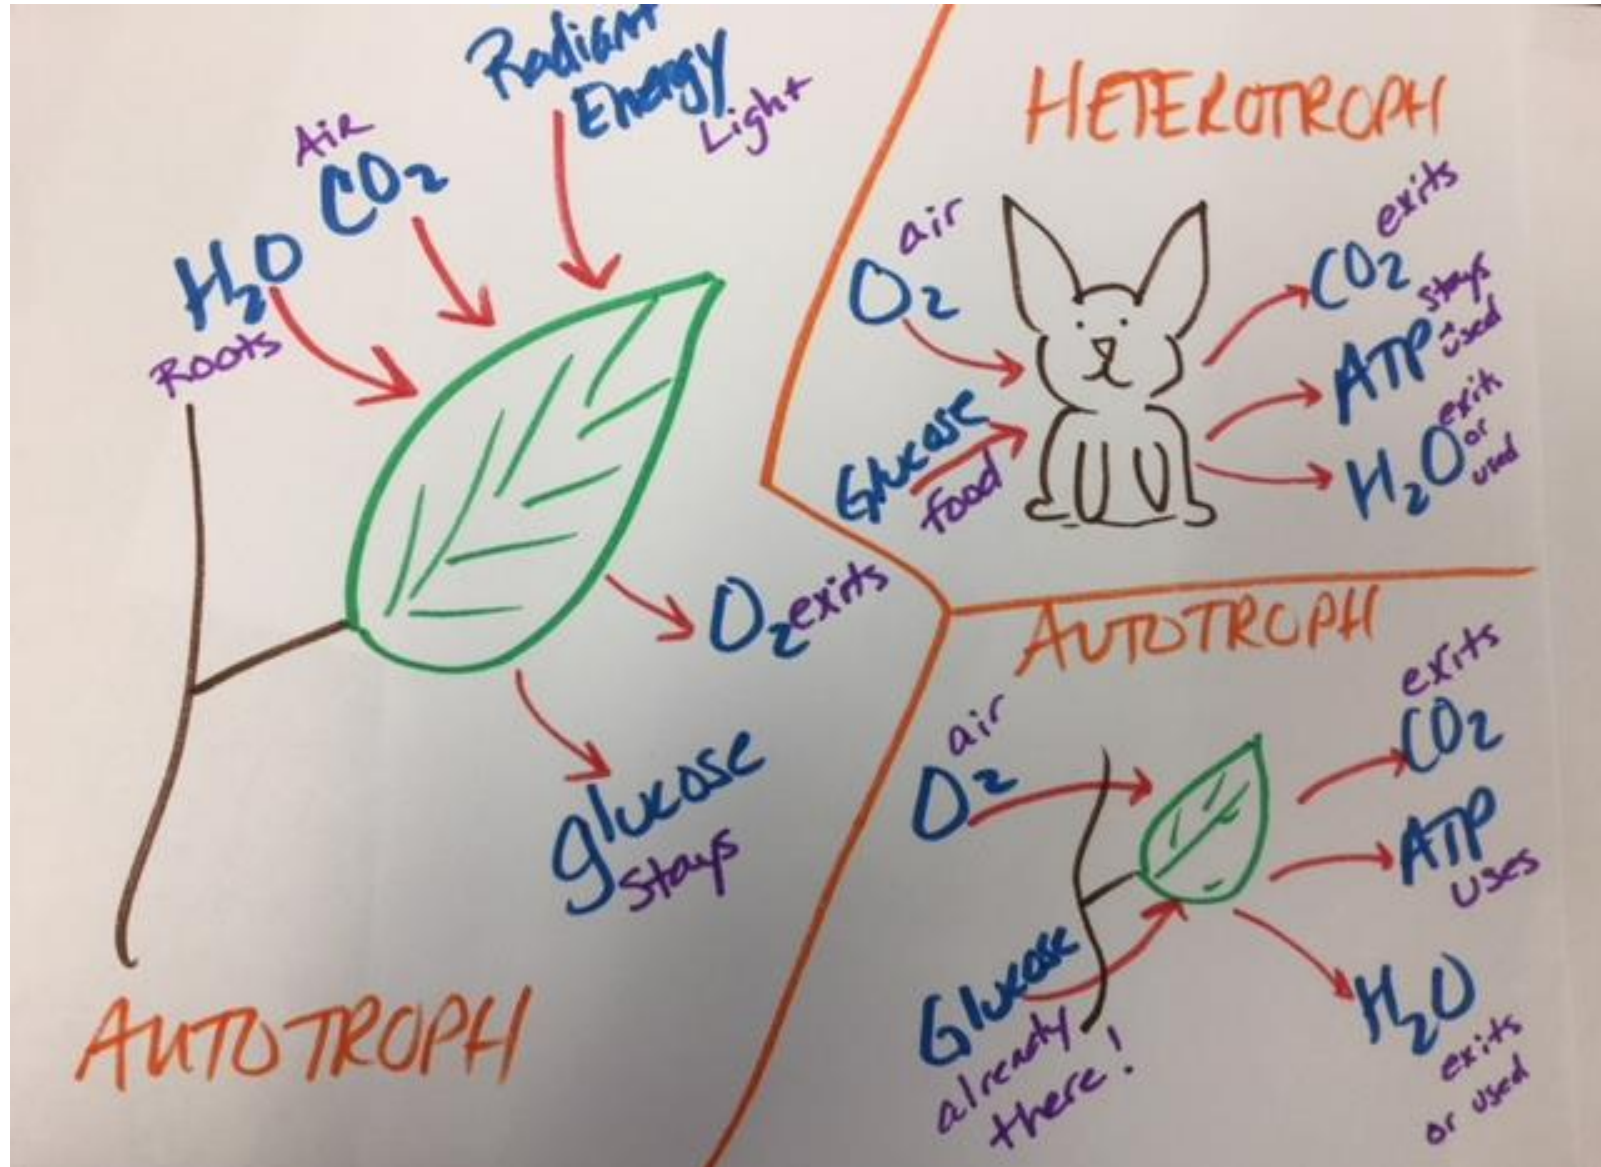 Radiant
Energy
Light
Air
CO2
H2O
Roots
O2 exits
glucose
stays
AUTOTROPH
HETEROTROPH
air
O2
Glucose
food
exits
CO2
ATP stays
used
H2O exit
or
used
AUTOTROPH
air
O2
Glucose
already
there!
exits
CO2
ATP
uses
H2O
exits
or used